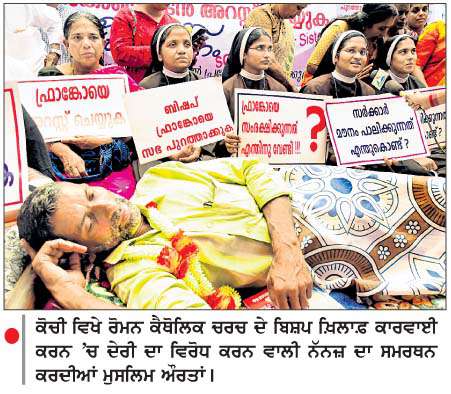 അറസ്റ്റ് ചെയ്യുക
ഫ്രാങ്കോയെ
റസ്റ്റ് ചെയ്യുക
ബിഷപ്
ഫ്രാങ്കോയെ
സഭ പുറത്താക്കുക
ഫ്രാങ്കോയെ
സംരക്ഷിക്കുന്നത്
എന്തിനു വേണ്ടി !! ?
സർക്കാർ
മൗനം പാലിക്കുന്നത്
എന്തുകൊണ്ട് ?
ਕੋਚੀ ਵਿਖੇ ਰੋਮਨ ਕੈਥੋਲਿਕ ਚਰਚ ਦੇ ਬਿਸ਼ਪ ਖ਼ਿਲਾਫ਼ ਕਾਰਵਾਈ
ਕਰਨ 'ਚ ਦੇਰੀ ਦਾ ਵਿਰੋਧ ਕਰਨ ਵਾਲੀ ਨੱਨਜ਼ ਦਾ ਸਮਰਥਨ
ਕਰਦੀਆਂ ਮੁਸਲਿਮ ਔਰਤਾਂ।